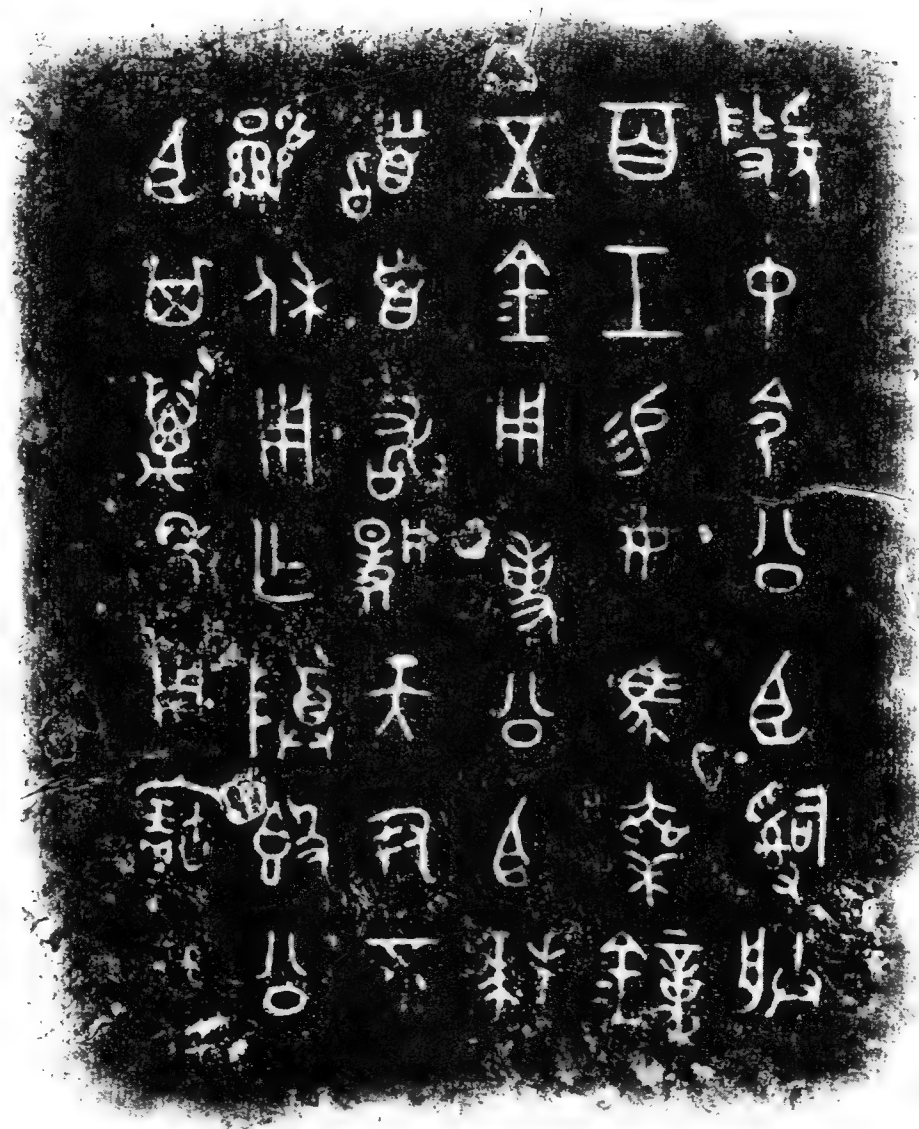 虢中令公臣𤔲朕
百工易女馬乘鐘
五金用事公臣拜
𩒨首敢揚天尹不
顯休用乍尊𣪘公
臣其萬年用寶